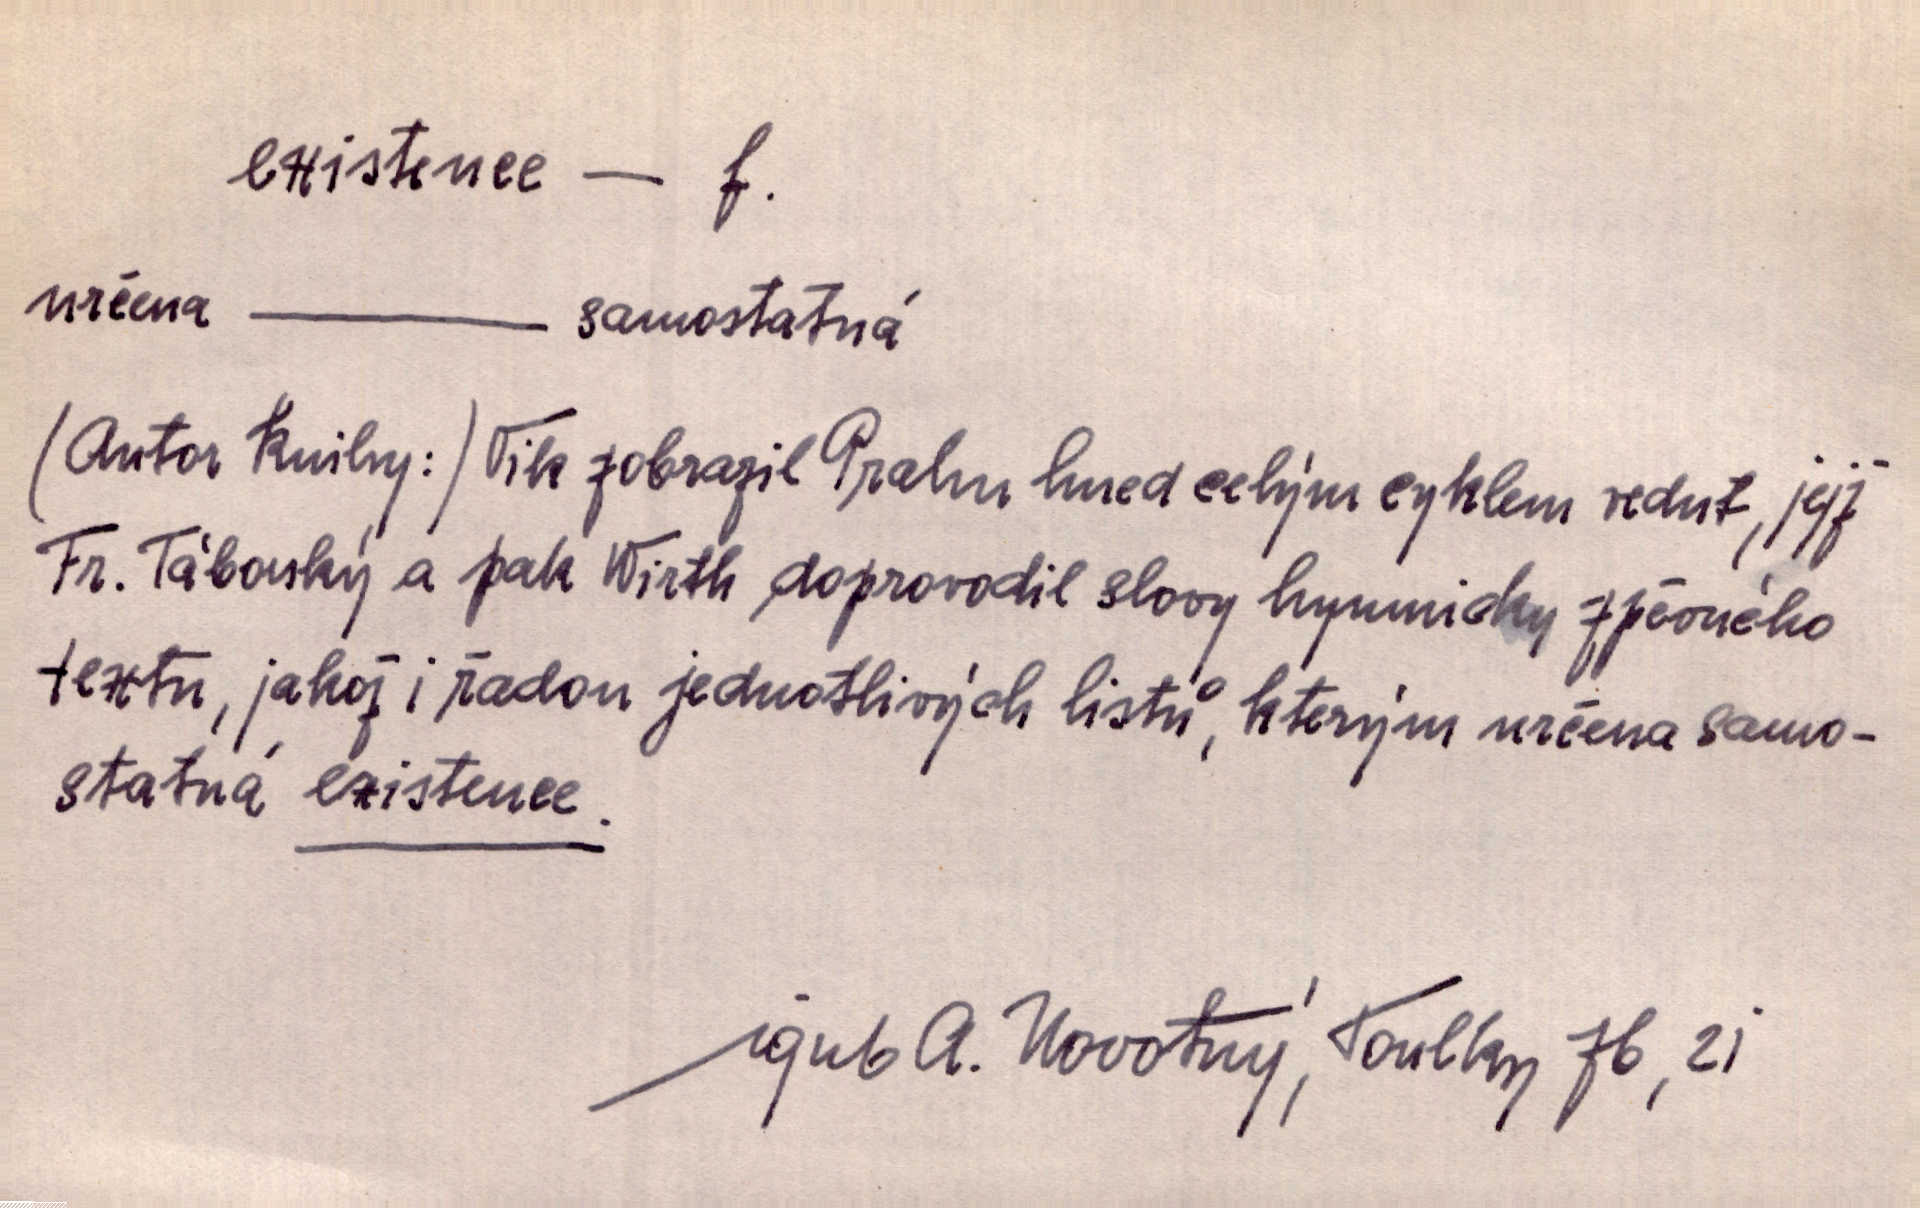 existence — f.
určena — samostatná
(Autor knihy:) Vik zobrazil Prahu hned celým cyklem vedut, jejž
Fr. Táborský a pak Wirth doprovodil slovy hymnicky zpěvného
textu, jakož i řadou jednotlivých listů, kterým určena samo-
statná existence.
A. Novotný, Toulky 76, 21